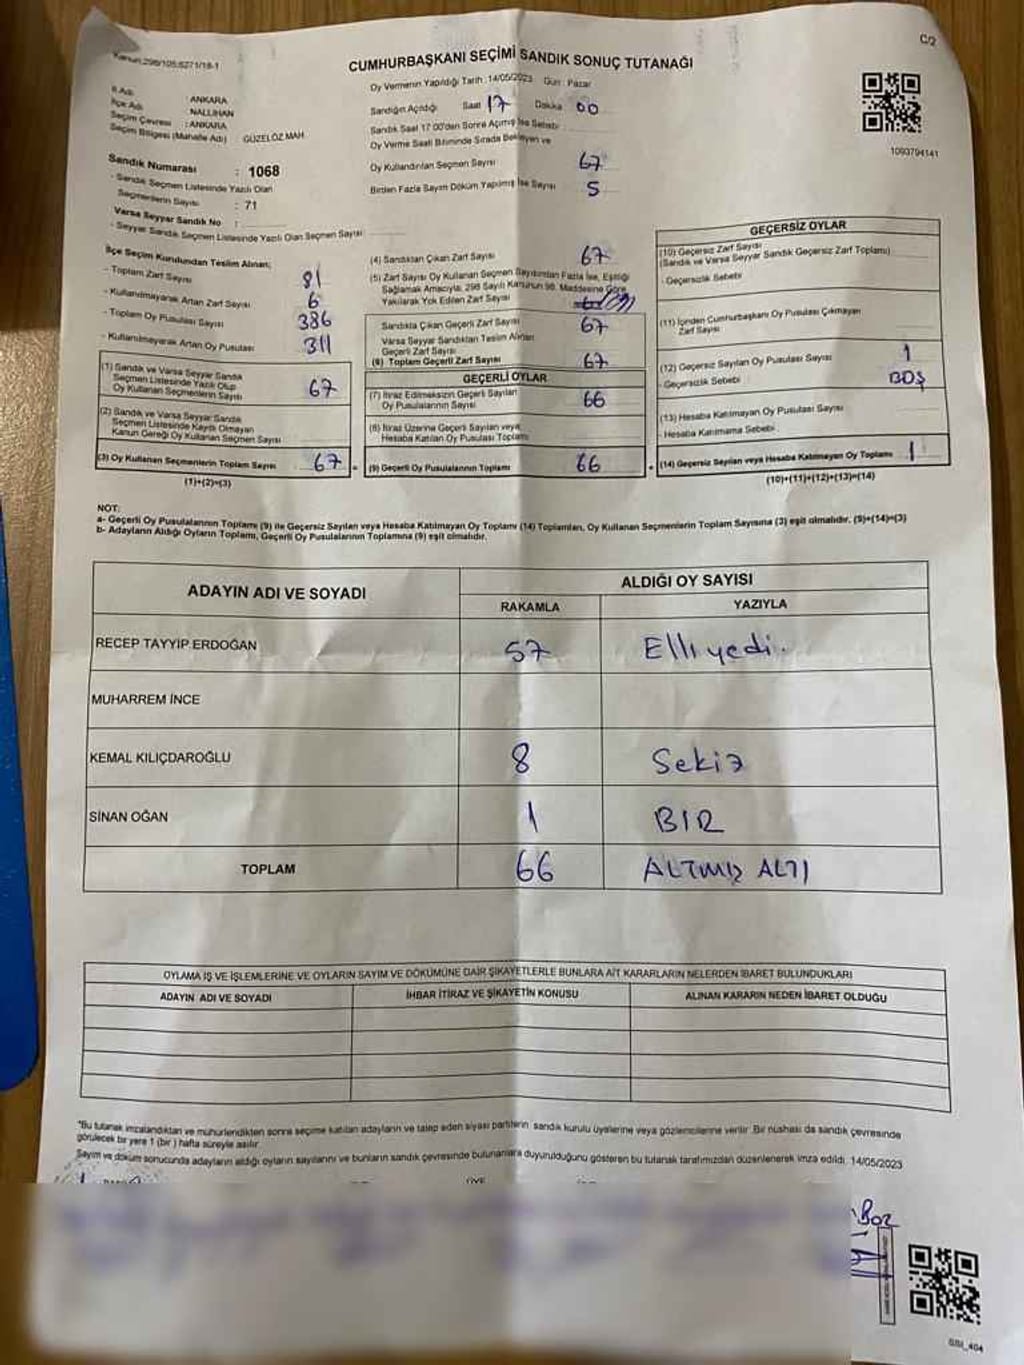 Kanun:298/105,6271/18-1
C/2
CUMHURBAŞKANI SEÇİMİ SANDIK SONUÇ TUTANAĞI
İl Adı : ANKARA
İlçe Adı : NALLIHAN
Seçim Çevresi : ANKARA
Seçim Bölgesi (Mahalle Adı) GÜZELÖZ MAH.
Oy Vermenin Yapıldığı Tarih :14/05/2023 Gün : Pazar
Sandığın Açıldığı Saat 17 Dakika 00
Sandık Saat 17:00'den Sonra Açılmış İse Sebebi:
Oy Verme Saati Bitiminde Sırada Bekleyen ve
Oy Kullandırılan Seçmen Sayısı 67
Birden Fazla Sayım Döküm Yapılmış İse Sayısı 5
1093794141
Sandık Numarası : 1068
- Sandık Seçmen Listesinde Yazılı Olan
Seçmenlerin Sayısı : 71
Varsa Seyyar Sandık No :
- Seyyar Sandık Seçmen Listesinde Yazılı Olan Seçmen Sayısı:
İlçe Seçim Kurulundan Teslim Alınan;
- Toplam Zarf Sayısı 81
- Kullanılmayarak Artan Zarf Sayısı 6
- Toplam Oy Pusulası Sayısı 386
- Kullanılmayarak Artan Oy Pusulası 311
(1) Sandık ve Varsa Seyyar Sandık
Seçmen Listesinde Yazılı Olup
Oy Kullanan Seçmenlerin Sayısı 67
(2) Sandık ve Varsa Seyyar Sandık
Seçmen Listesinde Kayıtlı Olmayan
Kanun Gereği Oy Kullanan Seçmen Sayısı
(3) Oy Kullanan Seçmenlerin Toplam Sayısı 67
(1)+(2)=(3)
(4) Sandıktan Çıkan Zarf Sayısı 67
(5) Zarf Sayısı Oy Kullanan Seçmen Sayısından Fazla İse, Eşitliği
Sağlamak Amacıyla, 298 Sayılı Kanunun 98. Maddesine Göre
Yakılarak Yok Edilen Zarf Sayısı
Sandıkta Çıkan Geçerli Zarf Sayısı 67
Varsa Seyyar Sandıktan Teslim Alınan
Geçerli Zarf Sayısı
(6) Toplam Geçerli Zarf Sayısı 67
GEÇERLİ OYLAR
(7) İtiraz Edilmeksizin Geçerli Sayılan
Oy Pusulalarının Sayısı 66
(8) İtiraz Üzerine Geçerli Sayılan veya
Hesaba Katılan Oy Pusulası Toplamı
(9) Geçerli Oy Pusulalarının Toplamı 66
GEÇERSİZ OYLAR
(10) Geçersiz Zarf Sayısı
(Sandık ve Varsa Seyyar Sandık Geçersiz Zarf Toplamı)
- Geçersizlik Sebebi
(11) İçinden Cumhurbaşkanı Oy Pusulası Çıkmayan
Zarf Sayısı
(12) Geçersiz Sayılan Oy Pusulası Sayısı 1
- Geçersizlik Sebebi BOŞ
(13) Hesaba Katılmayan Oy Pusulası Sayısı
- Hesaba Katılmama Sebebi
(14) Geçersiz Sayılan veya Hesaba Katılmayan Oy Toplamı 1
(10)+(11)+(12)+(13)=(14)
NOT:
a- Geçerli Oy Pusulalarının Toplamı (9) ile Geçersiz Sayılan veya Hesaba Katılmayan Oy Toplamı (14) Toplamları, Oy Kullanan Seçmenlerin Toplam Sayısına (3) eşit olmalıdır. (9)+(14)=(3)
b- Adayların Aldığı Oyların Toplamı, Geçerli Oy Pusulalarının Toplamına (9) eşit olmalıdır.
ADAYIN ADI VE SOYADI ALDIĞI OY SAYISI
RAKAMLA YAZIYLA
RECEP TAYYİP ERDOĞAN 57 Elliyedi.
MUHARREM İNCE
KEMAL KILIÇDAROĞLU 8 Sekiz
SİNAN OĞAN 1 BIR
TOPLAM 66 ALTMIŞ ALTI
OYLAMA İŞ VE İŞLEMLERİNE VE OYLARIN SAYIM VE DÖKÜMÜNE DAİR ŞİKAYETLERLE BUNLARA AİT KARARLARIN NELERDEN İBARET BULUNDUKLARI
ADAYIN ADI VE SOYADI İHBAR İTİRAZ VE ŞİKAYETİN KONUSU ALINAN KARARIN NEDEN İBARET OLDUĞU
"Bu tutanak imzalandıktan ve mühürlendikten sonra seçime katılan adayların ve talep eden siyasi partilerin sandık kurulu üyelerine veya gözlemcilerine verilir. Bir nüshası da sandık çevresinde
görülecek bir yere 1 (bir) hafta süreyle asılır.
Sayım ve döküm sonucunda adayların aldığı oyların sayılarını ve bunların sandık çevresinde bulunanlara duyurulduğunu gösteren bu tutanak tarafımızdan düzenlenerek imza edildi. 14/05/2023
ÜYE
Boz